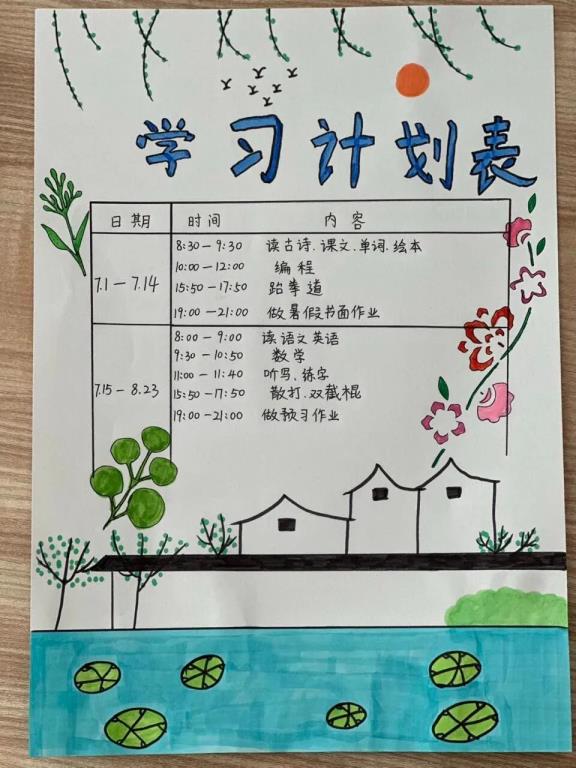 学习计划表
日期 时间 内容
7.1-7.14
8:30-9:30 读古诗.课文.单词.绘本
10:00-12:00 编程
15:50-17:50 跆拳道
19:00-21:00 做暑假书面作业
7.15-8.23
8:00-9:00 读语文英语
9:30-10:50 数学
11:00-11:40 听写、练字
15:50-17:50 散打.双截棍
19:00-21:00 做预习作业